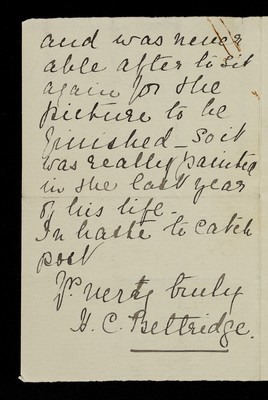 and was never
able after to sit
again for the
picture to be
finished_ so it
was really painted
in the last year
of his life_
In haste to catch
post
Yr. very truly
H. C. Bettridge.